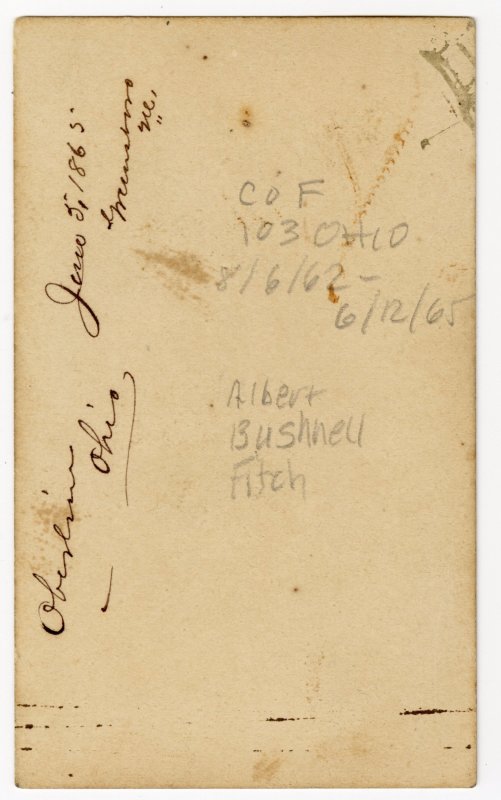 Oberlin
Ohio
June 5, 1865
Greensboro
N.C.
Co F
103 OHIO
8/6/62 -
6/12/65
Albert
Bushnell
Fitch